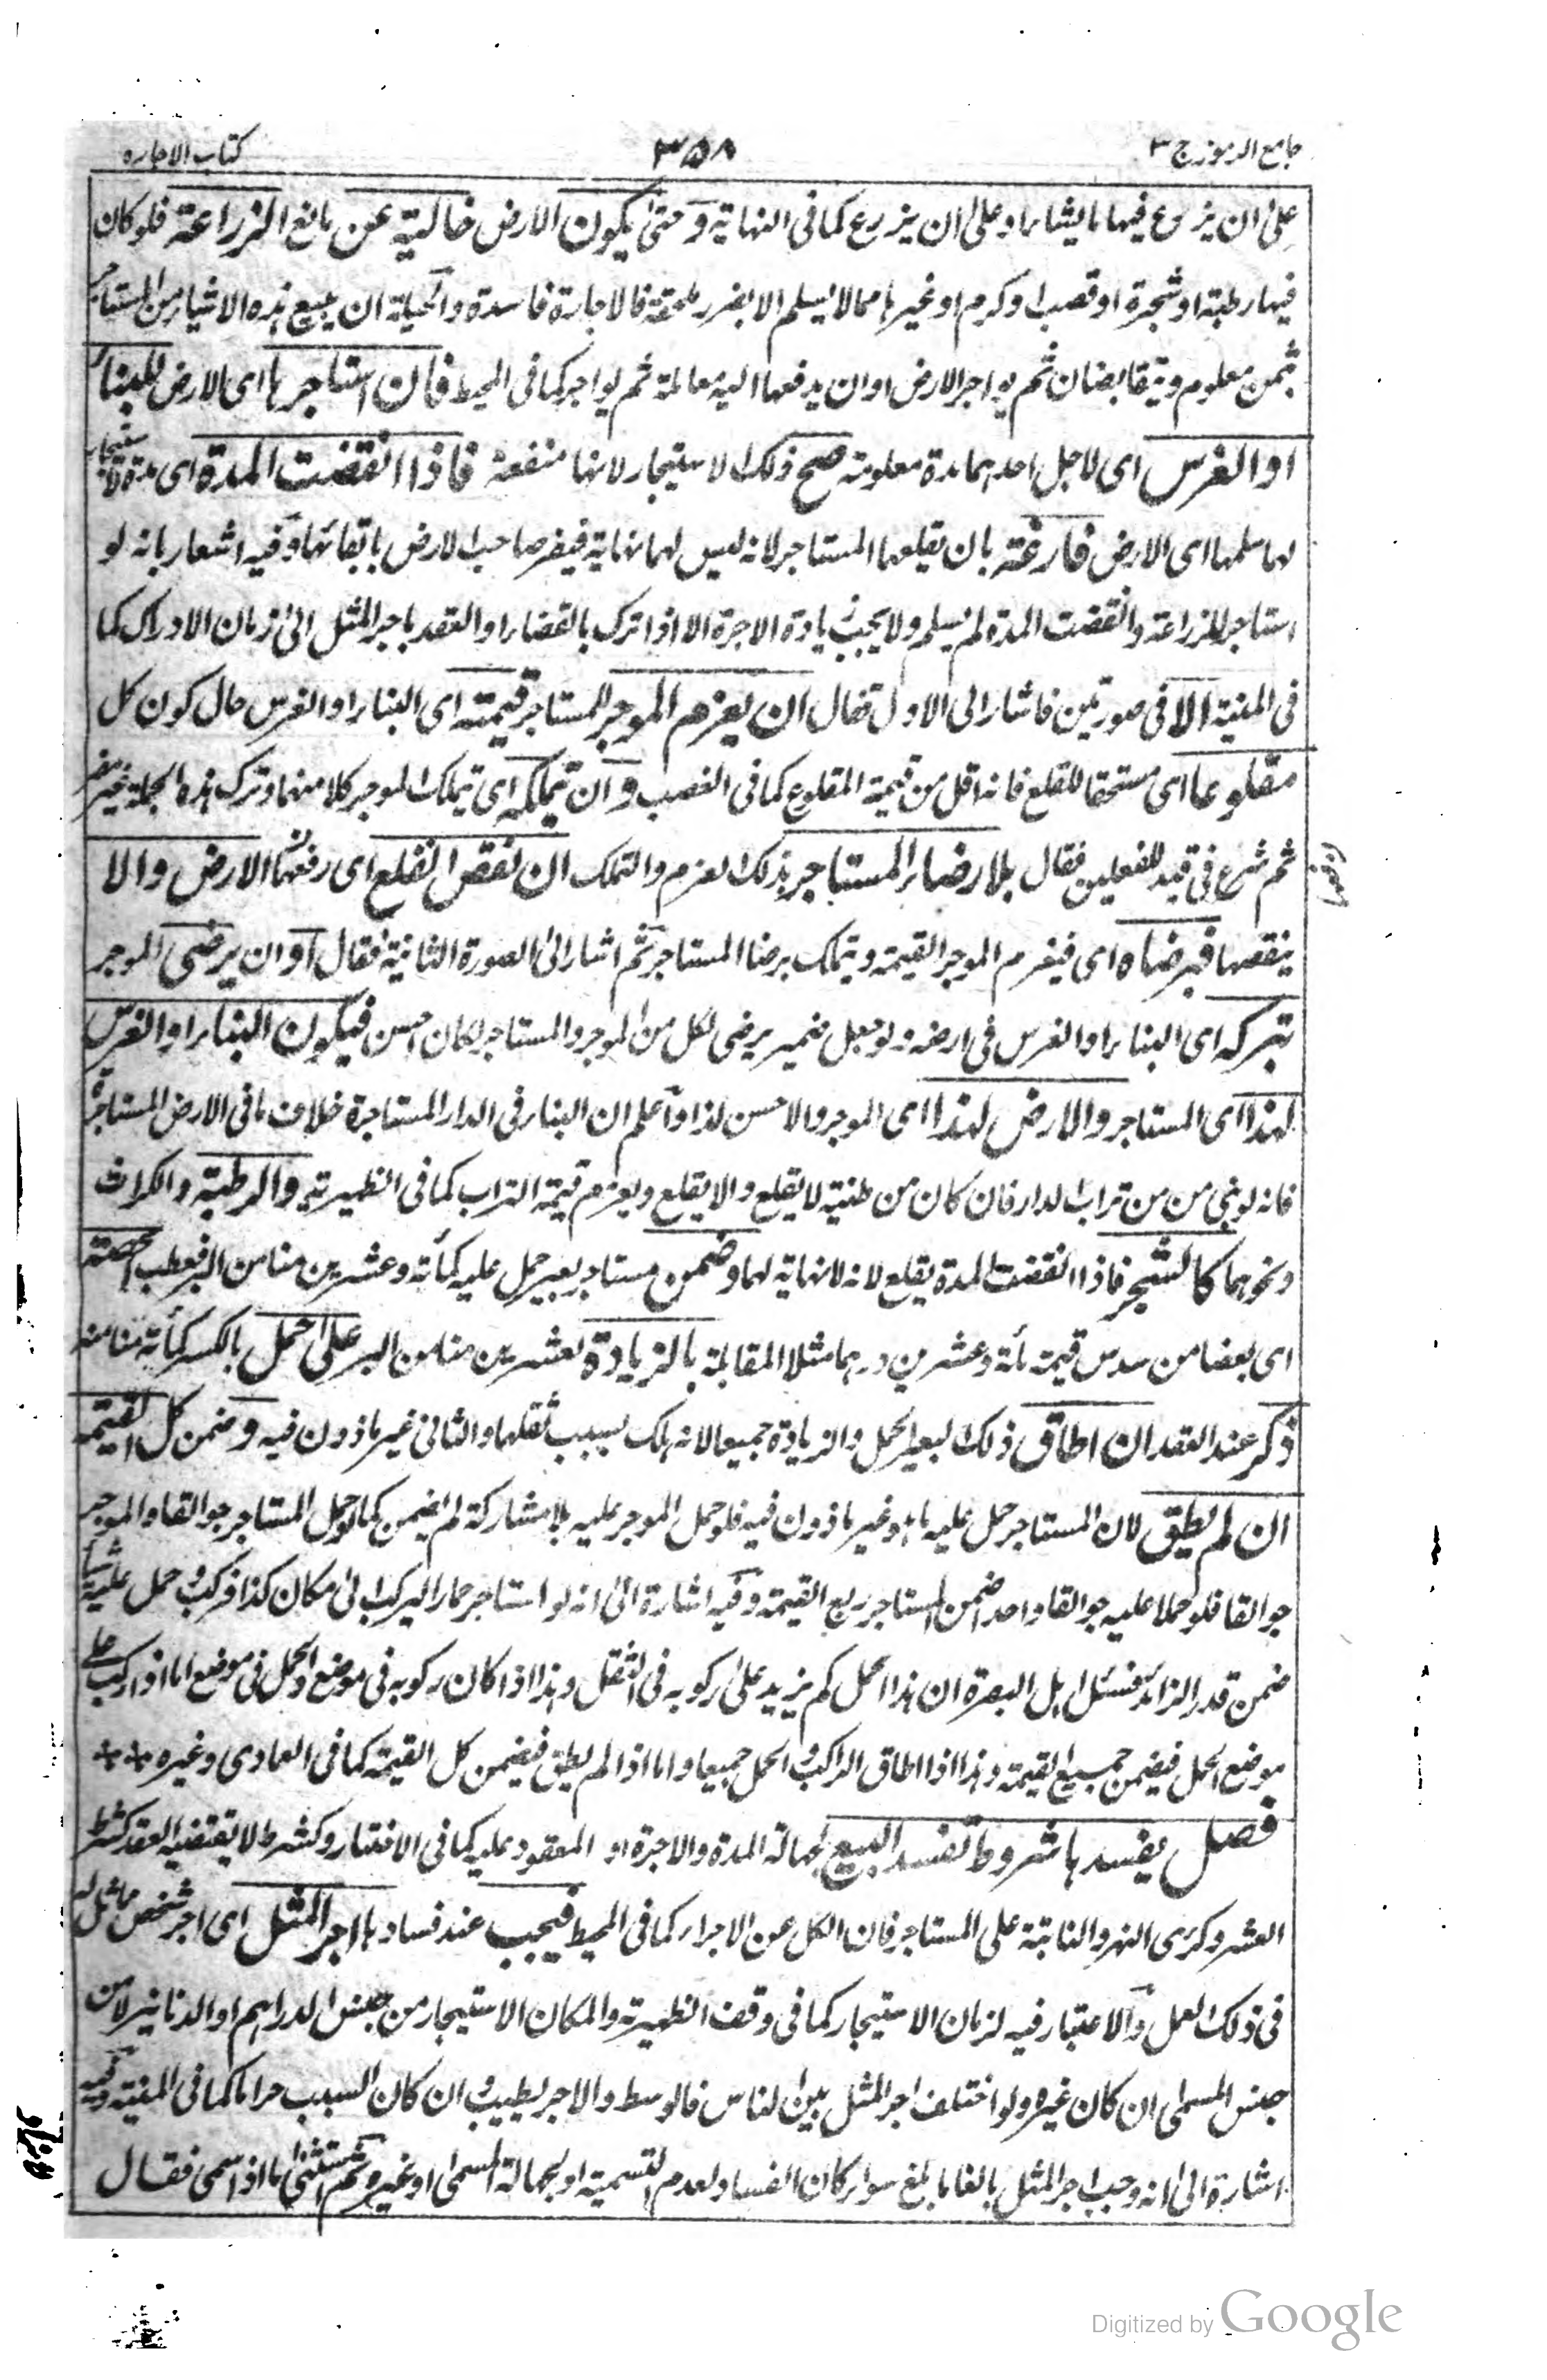 جامع الرموز ج ٣
٣٥٨
كتاب الاجاره
على ان يزرع فيها ما يشاء او على ان يزرع كما فى النهاية و حتى يكون الارض خالية عن مانع الزراعة فلو كان
فيها رطبة او شجرة او قصب او كرم او غيرها مما لا يسلم الا بضرر ملحقة فالاجارة فاسدة والحيلة ان يبيع هذه الاشياء من المستاجر
بثمن معلوم ويتقابضان ثم يواجر الارض او ان يدفعها اليه معاملة ثم يواجر كما فى المحيط فان استاجرها اى الارض للبناء
او الغرس اى لاجل احدهما مدة معلومة صح ذلك الاستيجار لانها منفعة فاذا انقضت المدة اى مدة استيجار
لها سلمها اى الارض فارغة بان يقلعها المستاجر لانه ليس لهما نهاية فيضر صاحب الارض بابقائها وفيه اشعار بانه لو
استاجر للزراعة وانقضت المدة لم يسلم ولا يجب زيادة الاجرة الا اذا ترك بالقضاء او العقد باجر المثل الى زمان الادراك كما
فى المنية الا فى صورتين فاشار الى الاول فقال ان يغرم الموجر للمستاجر قيمته اى البناء او الغرس حال كون كل
مقلوعا اى مستحقا للقلع فانه اقل من قيمة المقلوع كما فى الغصب و ان يتملكه اى يتملك الموجر كلا منهما وترك هذه الجملة غير مضر
ثم شرع فى قيد للفعلين فقال بلا رضاء المستاجر بذلك الغرم والتملك ان نقص القلع اى رفعهما الارض والا
ينقصها فبرضاه اى فيغرم الموجر القيمة ويتملك برضا المستاجر ثم اشار الى الصورة الثانية فقال او ان يرضى الموجر
بتركه اى البناء او الغرس فى ارضه ولو جعل ضمير يرضى لكل من الموجر والمستاجر لكان احسن فيكون البناء او الغرس
لهذا اى المستاجر والارض لهذا اى الموجر والاحسن لذا واعلم ان البناء فى الدار المستاجرة خلاف ما فى الارض المستاجرة
فانه لو بنى من تراب الدار فان كان من طينة لا يقلع والا يقلع ويغرم قيمة التراب كما فى الظهيرية والرطبة والكراث
ونحوهما كالشجر فاذا انقضت المدة يقلع لانه لا نهاية لهما وضمن مستاجر بعير حمل عليه كمأته وعشرين منا من البر فعطب حصته
اى بعضا من سدس قيمة مأة وعشرين درهما مثلا المقابلة بالزيادة لعشرين منا من البر على حمل بالكسر كمأته منا منه
ذكر عند العقد ان اطاق ذلك البعير الحمل والزيادة جميعا لانه هلك بسبب ثقلها والثانى غير ماذون فيه و ضمن كل القيمة
ان لم يطق لان المستاجر حمل عليه ما هو غير ماذون فيه فلو حمل الموجر عليه بلا مشاركة لم يضمن كما لو حمل المستاجر جوالقا والموجر
جوالقا فلو حملا عليه جوالقا واحدا ضمن المستاجر ربع القيمة وفيه اشارة الى انه لو استاجر حمارا ليركب الى مكان كذا فركب وحمل عليه شيأ
ضمن قدر الزائد فسئل اهل البصرة ان هذا الحمل كم يزيد على ركوبه فى الثقل وهذا اذا كان ركوبه فى موضع والحمل فى موضع اما اذا ركب على
موضع الحمل فيضمن جميع القيمة وهذا اذا اطاق الراكب والحمل جميعا واما اذا لم يطق فيضمن كل القيمة كما فى العمادى وغيره **
فصل يفسدها شروط تفسد البيع لجهالة المدة والاجرة او المعقود عليه كما فى الاختيار وكشرط لا يقتضيه العقد كشرط
العشر وكرى النهر والنابتة على المستاجر فان الكل عن الاجراء كما فى المحيط فيجب عند فسادها اجر المثل اى اجر شخص مماثل له
فى ذلك العمل والاعتبار فيه لزمان الاستيجار كما فى وقف الظهيرية والمكان الاستيجار من جنس الدراهم او الدنانير لا من
جنس المسمى ان كان غيره ولو اختلف اجر المثل بين الناس فالوسط والاجر يطيب وان كان السبب حراما كما فى المنية وفيه
اشارة الى انه وجب اجر المثل بالغا ما بلغ سواء كان الفساد لعدم التسمية او لجهالة المسمى او غيره ثم استثنى ما اذا سمى فقال
Digitized by Google